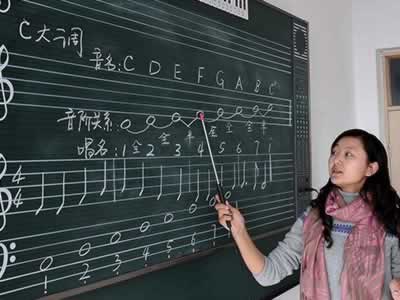 C大调
音名: C D E F G A B C
音阶关系 全 全 半 全 全 全 半
唱名: 1 2 3 4 5 6 7 i
4 4
4 4
1 2 3 4 5 6 7